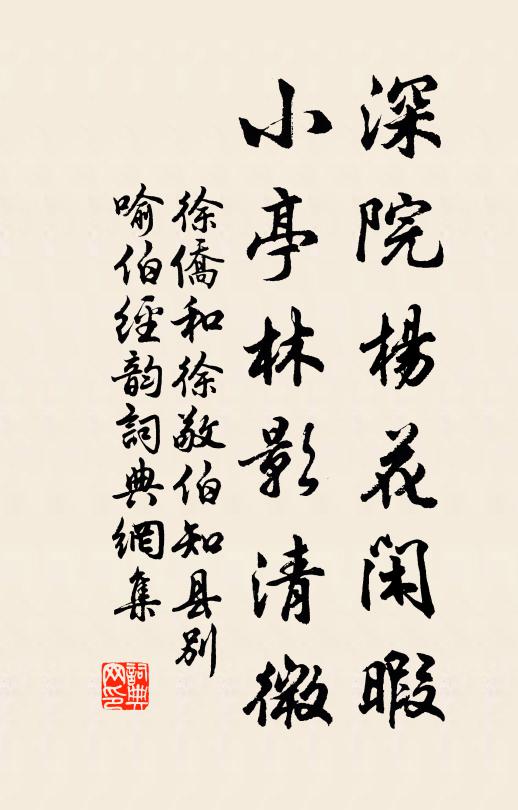 深院楊花闲暇
小亭林影清微
徐僑和徐敬伯知县别
喻伯經韵詞典網集
詞典网印